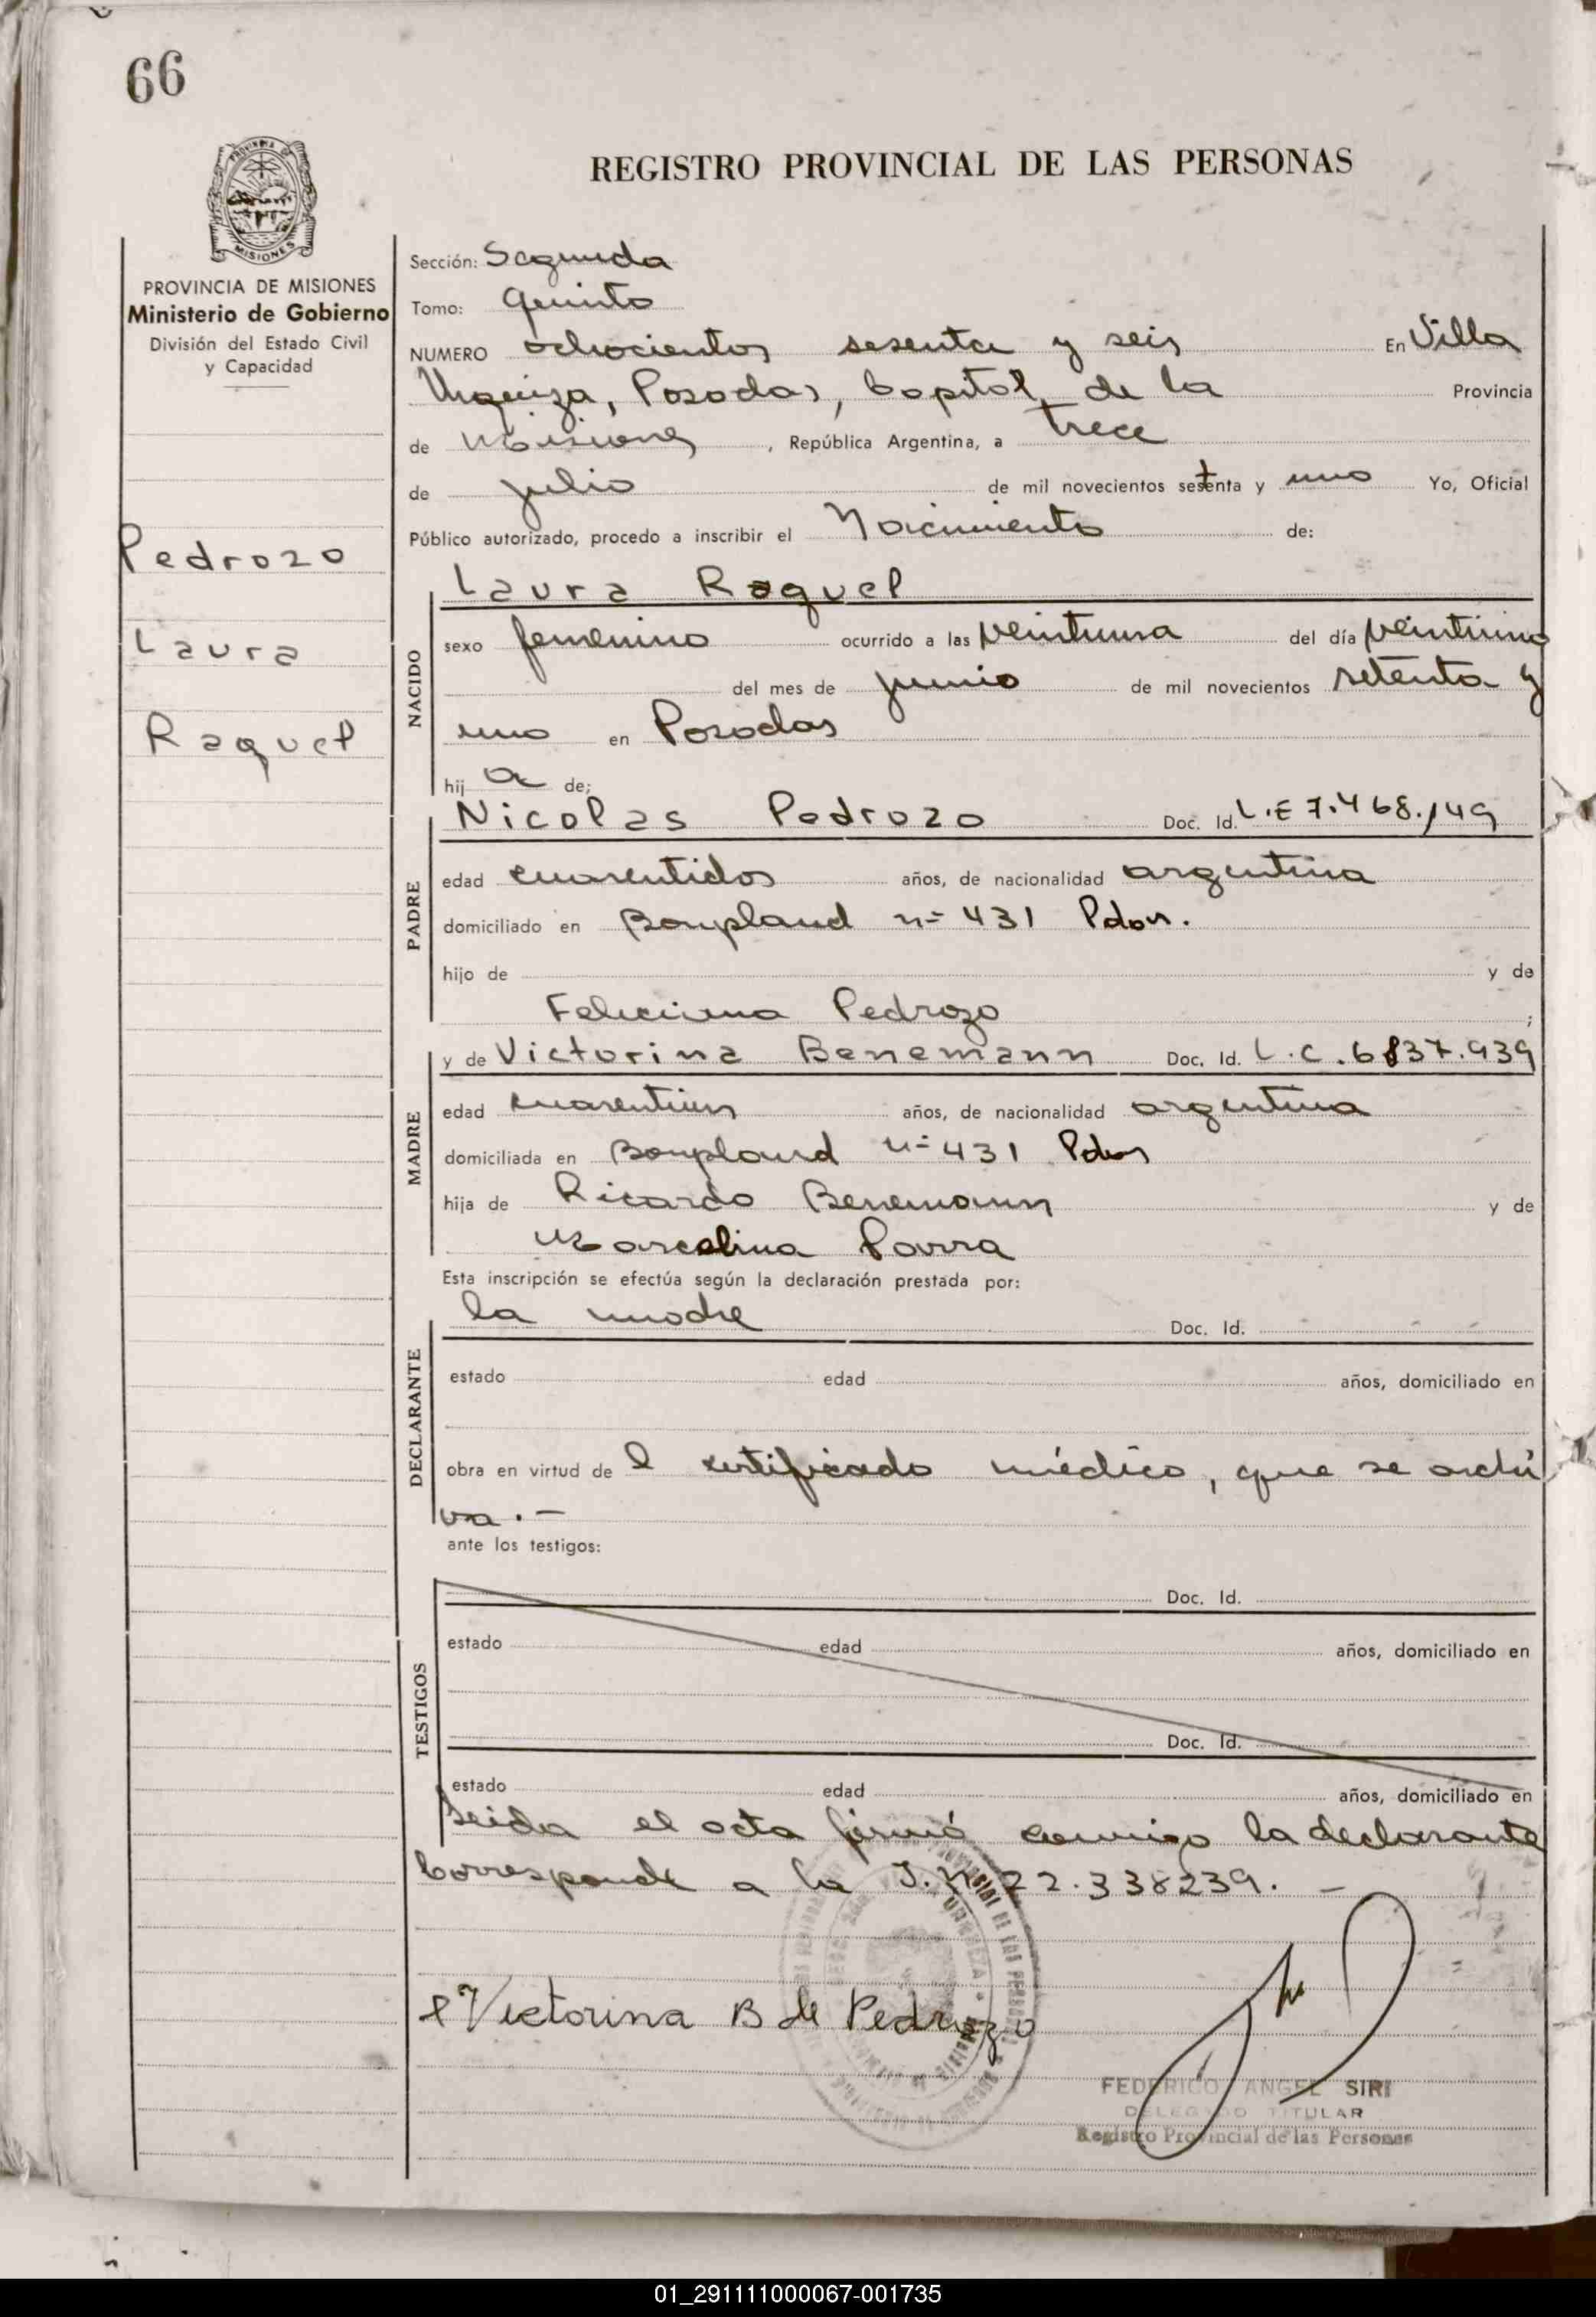 66
REGISTRO PROVINCIAL DE LAS PERSONAS
PROVINCIA DE
MISIONES
PROVINCIA DE MISIONES
Ministerio de Gobierno
División del Estado Civil
y Capacidad
Pedrozo
Laura
Raquel
Sección: Segunda
Tomo: Quinto
NUMERO ochocientos sesenta y seis En Villa
Urquiza, Posadas, Capital de la Provincia
de Misiones, República Argentina, a trece
de julio de mil novecientos setenta y uno Yo, Oficial
Público autorizado, procedo a inscribir el Nacimiento de:
NACIDO
Laura Raquel
sexo femenino ocurrido a las veintiuna del día veintiuno
del mes de junio de mil novecientos setenta y
uno en Posadas
hij a de;
PADRE
Nicolas Pedrozo Doc. Id. L.E 7.468.149
edad cuarentidos años, de nacionalidad argentina
domiciliado en Bonpland nº 431 Pdas.
hijo de y de
Feliciana Pedrozo ;
MADRE
y de Victorina Benemann Doc. Id. L.C. 6837.939
edad años, de nacionalidad argentina
domiciliada en Bonpland nº 431 Pdas
hija de Ricardo Benemann y de
Marcelina Parra
Esta inscripción se efectúa según la declaración prestada por:
DECLARANTE
la madre Doc. Id.
estado edad años, domiciliado en
obra en virtud de l certificado médico, que se archi
va. -
ante los testigos:
TESTIGOS
Doc. Id.
estado edad años, domiciliado en
Doc. Id.
estado edad años, domiciliado en
Leida el acta firmó conmigo la declarante
Corresponde a la I.N 22.338239. -
Victorina B de Pedrozo
FEDERICO ANGEL SIRI
DELEGADO TITULAR
Registro Provincial de las Personas
01_291111000067-001735